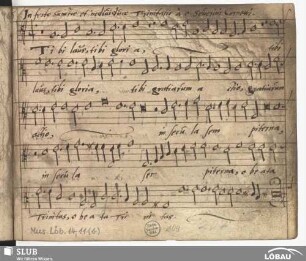 In festo sanctae et individuae Trinitatis a 6
Tibi laus, tibi gloria, tibi
laus, tibi gloria, tibi gratiarum a ctio, gratiarum
actio, in secula sem piterna,
in secula sem piterna, o beata
Trinitas, o be a ta Tri ni tas.
Mus. Löb. 14, 11 (4)
SLUB
Wir führen Wissen.
LÖBAU